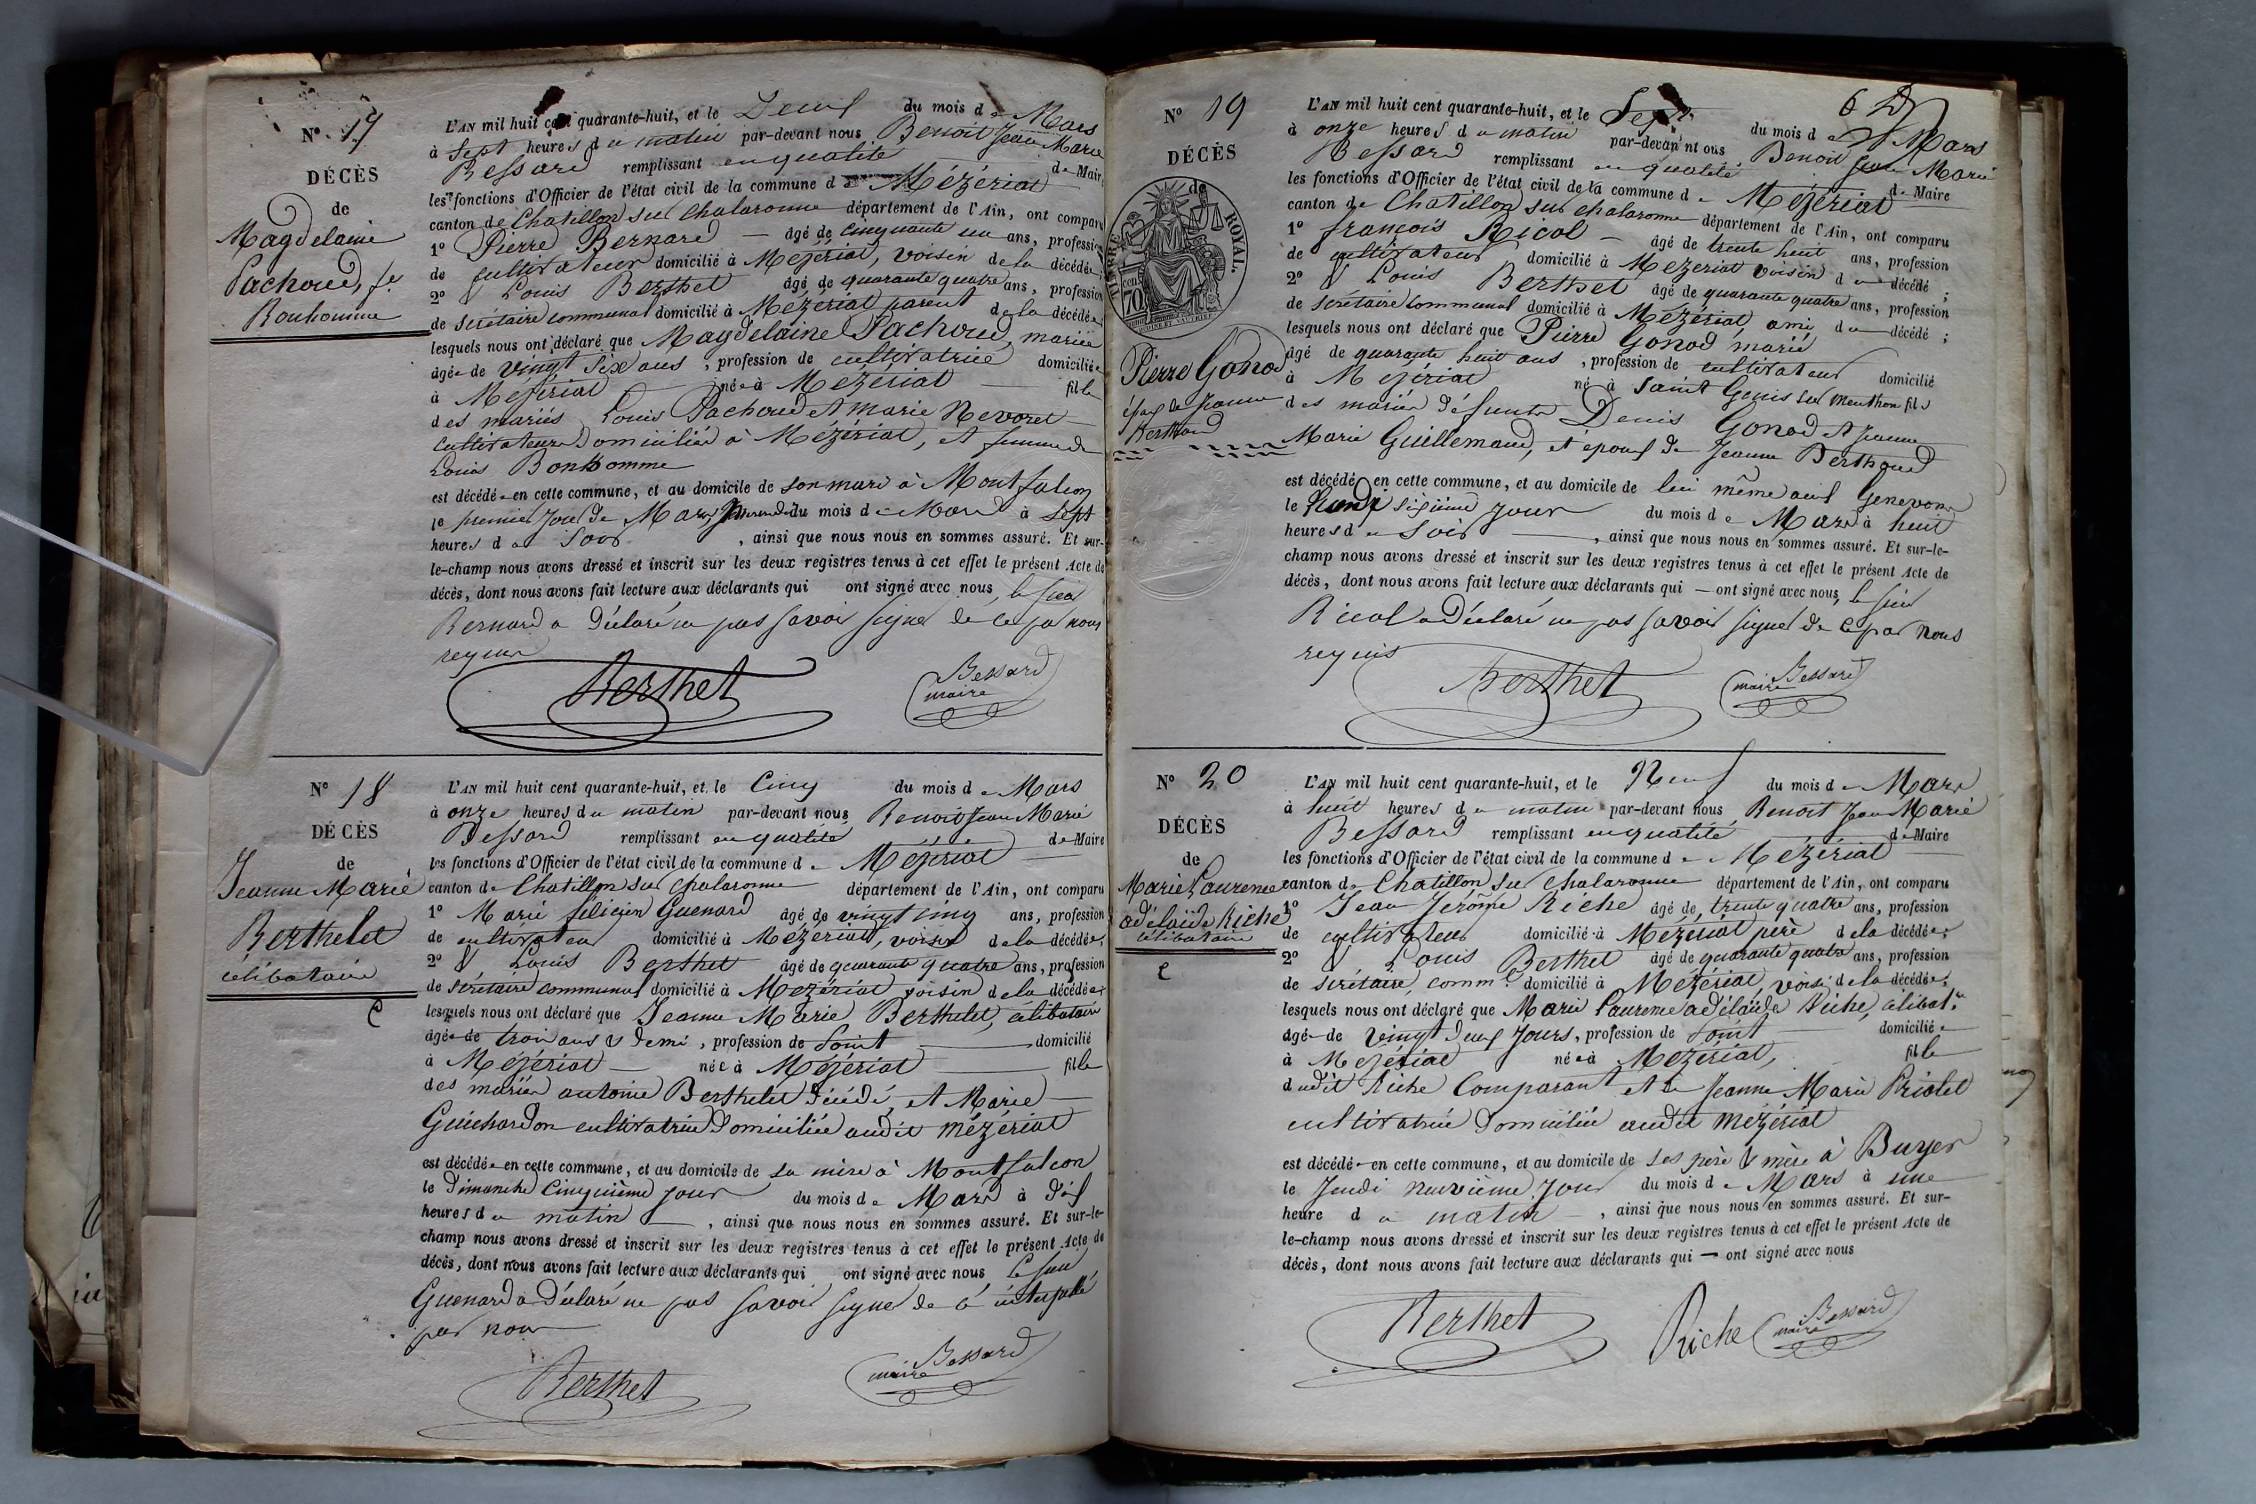 N° 17
DÉCÈS
de
Magdelaine
Pachoud, fe
Bonhomme
L'AN mil huit cent quarante-huit, et le Deux du mois de Mars
à Sept heures du matin par-devant nous Benoit Jean Marie
Bessard remplissant en qualité de Maire
les fonctions d'Officier de l'état civil de la commune de Mézériat
canton de Chatillon sur Chalaronne département de l'Ain, ont comparu
1° Pierre Bernard — âgé de cinquante un ans, profession
de cultivateur domicilié à Mézériat, voisin de la décédée
2° & Louis Berthet âgé de quarante quatre ans, profession
de secrétaire communal domicilié à Mézériat parent de la décédée
lesquels nous ont déclaré que Magdelaine Pachoud, mariée
âgée de vingt six ans, profession de cultivatrice domiciliée
à Mézériat née à Mézériat — fille
des mariés Louis Pachoud et Marie Nevoret
cultivateurs domiciliés à Mézériat, et femme de
Louis Bonhomme
est décédée en cette commune, et au domicile de son mari à Montfalcon
le premier jour de Mars du mois de Mars à Sept
heures du soir, ainsi que nous nous en sommes assuré. Et sur-
le-champ nous avons dressé et inscrit sur les deux registres tenus à cet effet le présent Acte de
décès, dont nous avons fait lecture aux déclarants qui ont signé avec nous, le sieur
Bernard a déclaré ne pas savoir signer de ce par nous
requis
Berthet
Bessard
maire
N° 18
DÉCÈS
de
Jeanne Marie
Berthelet
célibataire
C
L'AN mil huit cent quarante-huit, et le Cinq du mois de Mars
à onze heures du matin par-devant nous Benoit Jean Marie
Bessard remplissant en qualité de Maire
les fonctions d'Officier de l'état civil de la commune de Mézériat —
canton de Chatillon sur Chalaronne département de l'Ain, ont comparu
1° Marie félicien Guenard âgé de vingt cinq ans, profession
de cultivateur domicilié à Mézériat, voisin de la décédée;
2° & Louis Berthet âgé de quarante quatre ans, profession
de secrétaire communal domicilié à Mézériat voisin de la décédée;
lesquels nous ont déclaré que Jeanne Marie Berthelet, célibataire
âgée de trois ans & demi, profession de Point — domicilié
à Mézériat — née à Mézériat — fille
des mariés antoine Berthelet décédé, et Marie —
Guichardon cultivatrice domiciliée audit mézériat
est décédée en cette commune, et au domicile de sa mère à Montfalcon
le Dimanche Cinquième jour du mois de Mars à dix
heures du matin —, ainsi que nous nous en sommes assuré. Et sur-le-
champ nous avons dressé et inscrit sur les deux registres tenus à cet effet le présent Acte de
décès, dont nous avons fait lecture aux déclarants qui ont signé avec nous Le sieur
Guenard a déclaré ne pas savoir signer de ce interpellé
par nous
Berthet
Bessard
maire
6
N° 19
DÉCÈS
de
TIMBRE ROYAL
70 cen.
Pierre Gonod
époux de Jeanne
Berthoud
L'AN mil huit cent quarante-huit, et le Sept du mois de Mars
à onze heures du matin par-devant nous Benoit Jean Marie
Bessard remplissant en qualité de Maire
les fonctions d'Officier de l'état civil de la commune de Mézériat
canton de Chatillon sur Chalaronne département de l'Ain, ont comparu
1° françois Ricol — âgé de trente huit ans, profession
de cultivateur domicilié à Mézériat voisin du décédé;
2° & Louis Berthet âgé de quarante quatre ans, profession
de secrétaire communal domicilié à Mézériat, ami du décédé;
lesquels nous ont déclaré que Pierre Gonod marié
âgé de quarante huit ans, profession de cultivateur domicilié
à Mézériat né à Saint Genis sur Menthon fils
des mariés défunts Denis Gonod et Jeanne
Marie Guillemaud, et epoux de Jeanne Berthoud
est décédé en cette commune, et au domicile de lui même aux Genevons
le Lundi sixième jour du mois de Mars à huit
heures du Soir —, ainsi que nous nous en sommes assuré. Et sur-le-
champ nous avons dressé et inscrit sur les deux registres tenus à cet effet le présent Acte de
décès, dont nous avons fait lecture aux déclarants qui — ont signé avec nous, le sieur
Ricol a déclaré ne pas savoir signer de ce par nous
requis
Berthet
Bessard
maire
N° 20
DÉCÈS
de
Marie Laurence
adélaïde Riche
célibataire
C
L'AN mil huit cent quarante-huit, et le Neuf du mois de Mars
à huit heures du matin par-devant nous Benoit Jean Marie
Bessard remplissant en qualité de Maire
les fonctions d'Officier de l'état civil de la commune de Mézériat —
canton de Chatillon sur Chalaronne département de l'Ain, ont comparu
1° Jean Jerôme Riche âgé de trente quatre ans, profession
de cultivateur domicilié à Mézériat père de la décédée;
2° & Louis Berthet âgé de quarante quatre ans, profession
de secrétaire comm.l domicilié à Mézériat, voisin de la décédée;
lesquels nous ont déclaré que Marie Laurence adélaïde Riche, célibat.re
âgée de vingt deux jours, profession de Point — domiciliée
à Mézériat née à Mézériat, fille
dudit Riche Comparant et de Jeanne Marie Priolet
cultivatrice domiciliée audit Mézériat
est décédée en cette commune, et au domicile de ses père & mère à Buyer
le Jeudi neuvième jour du mois de Mars à une
heure du matin —, ainsi que nous nous en sommes assuré. Et sur-
le-champ nous avons dressé et inscrit sur les deux registres tenus à cet effet le présent Acte de
décès, dont nous avons fait lecture aux déclarants qui — ont signé avec nous
Berthet
Riche
Bessard
maire